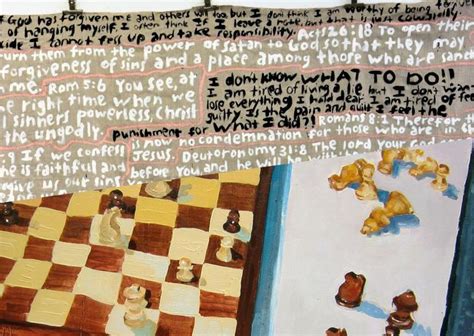 f God has forgiven me and others will too but I don't think I am worthy of being
of hanging myself, I often think leave a note, but that is just cowardly.
ide I cannot fess up and take responsibility. Acts 26:18 To open their
urn them from the power of satan to God so that they may
forgiveness of sins and a place among those who are
me. Rom 5:6 You see, at I don't KNOW WHAT TO DO!!
e right time when we I am tired of living a lie but I don't
sinners powerless, Christ lose everything I hold dear. I am tired of
the ungodly. Is the pain and guilt I feel the
Punishment for what I did? Romans 8:1 Therefor
is now no condemnation for those who are
:9 If we confess Jesus. Deutoronomy 31:8 The lord your God
he is faithful and before you and he will be with
us our sins